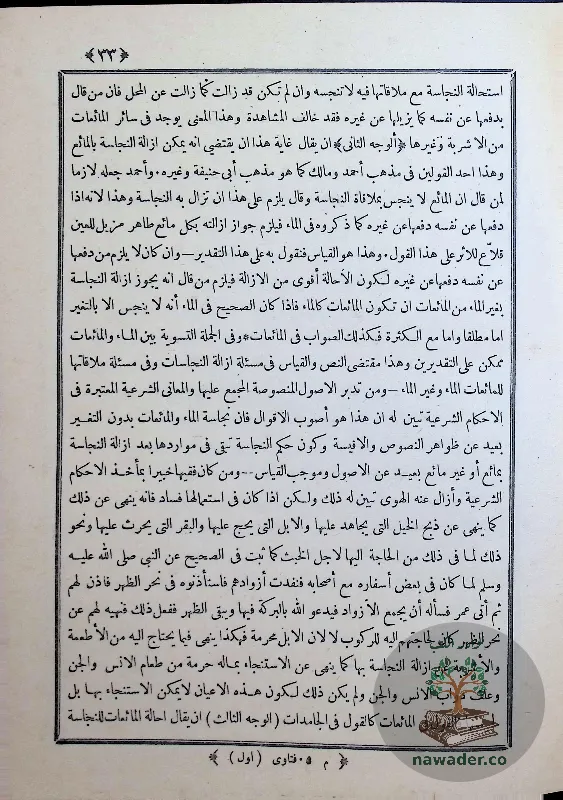 ﴿ ٣٣ ﴾
استحالة النجاسة مع ملاقاتها فيه لا تنجسه وان لم تكن قد زالت كما زالت عن المحل فان من قال
يدفعها عن نفسه كما يزيلها عن غيره فقد خالف المشاهدة وهذا المعنى يوجد فى سائر المائعات
من الاشربة وغيرها ﴿الوجه الثانى﴾ ان يقال غاية هذا ان يقتضي انه يمكن ازالة النجاسة بالمائع
وهذا احد القولين فى مذهب أحمد ومالك كما هو مذهب أبى حنيفة وغيره. وأحمد جعله لازما
لمن قال ان المائع لا ينجس بملاقاة النجاسة وقال يلزم على هذا ان تزال به النجاسة وهذا لانه اذا
دفعها عن نفسه دفعها عن غيره كما ذكروه فى الماء فيلزم جواز ازالته بكل مائع طاهر مزيل للعين
قلاّع للاثر على هذا القول. وهذا هو القياس فنقول به على هذا التقدير — وان كان لا يلزم من دفعها
عن نفسه دفعها عن غيره لكون الاحالة أقوى من الازالة فيلزم من قال انه يجوز ازالة النجاسة
بغير الماء من المائعات ان تكون المائعات كالماء فاذا كان الصحيح فى الماء أنه لا ينجس الا بالتغير
اما مطلقا واما مع الكثرة فكذلك الصواب فى المائعات * وفى الجملة التسوية بين الماء والمائعات
ممكن على التقديرين وهذا مقتضى النص والقياس فى مسئلة ازالة النجاسات وفى مسئلة ملاقاتها
للمائعات الماء وغير الماء — ومن تدبر الاصول المنصوصة المجمع عليها والمعانى الشرعية المعتبرة فى
الاحكام الشرعية تبين له ان هذا هو أصوب الاقوال فان نجاسة الماء والمائعات بدون التغير
بعيد عن ظواهر النصوص والاقيسة وكون حكم النجاسة تبقى فى مواردها بعد ازالة النجاسة
بمائع أو غير مائع بعيد عن الاصول وموجب القياس -- ومن كان فقيها خبيرا بمآخذ الاحكام
الشرعية وأزال عنه الهوى تبين له ذلك ولكن اذا كان فى استعمالها فساد فانه ينهى عن ذلك
كما ينهى عن ذبح الخيل التى يجاهد عليها والابل التى يحج عليها والبقر التى يحرث عليها ونحو
ذلك لما فى ذلك من الحاجة اليها لاجل الخبث كما ثبت فى الصحيح عن النبي صلى الله عليه
وسلم لما كان فى بعض أسفاره مع أصحابه فنفدت أزوادهم فاستأذنوه فى نحر الظهر فاذن لهم
ثم أتى عمر فسأله أن يجمع الأزواد فيدعو الله بالبركة فيها ويبقى الظهر ففعل ذلك فنهيه لهم عن
نحر الظهر كان لحاجتهم اليه للركوب لا لان الابل محرمة فهكذا ينهى فيما يحتاج اليه من الأطعمة
والأشربة عن ازالة النجاسة بها كما ينهى عن الاستنجاء بماله حرمة من طعام الانس والجن
وعلف دواب الانس والجن ولم يكن ذلك لكون هذه الاعيان لا يمكن الاستنجاء بها بل
المائعات كالقول فى الجامدات ( الوجه الثالث ) ان يقال احالة المائعات للنجاسة
﴿ م ٠٥ فتاوى ( أول ) ﴾
nawader.co